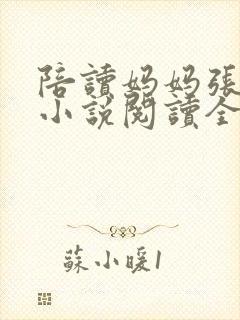 陪讀妈妈張
小說閱讀全
蘇小暖1